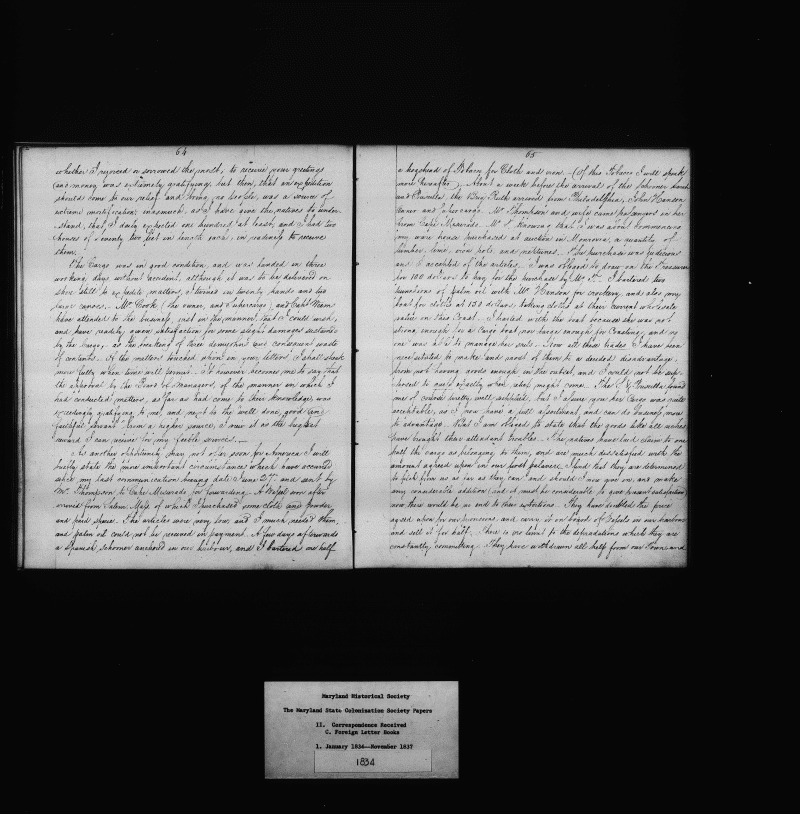 64
whether I rejoiced or sorrowed the most, to receive your greetings
and money was extremely gratifying, but then, that an expedition
should come to our relief and bring no people, was a source of
extreme mortification, inasmuch as I have given the natives to under-
stand, that I daily expected one hundred at least, and I had two
houses of seventy two feet in length each, in readiness to receive
them.
The Cargo was in good condition, and was landed in three
working days without accident, although it was to be delivered on
shore still to expedite matters, I turned in twenty hands and two
large canoes. Mr Cook (the owner, and Supercargo) and Capt
have attended to the business, just in the manner, that I could wish,
and have readily given satisfaction for some slight damages sustained
by the Cargo, as the breaking of three demijohns and consequent waste
of contents. Of the matters touched upon in your letters I shall speak
more fully when time will permit. It however becomes me to say that
the approval by the Board of Managers, of the manner in which I
had conducted matters, as far as had come to their knowledge, was
exceedingly gratifying to me, and next to the well done, good and
faithful servant from a higher source, I view it as the highest
award I can receive for my feeble services.
As another opportunity may not offer soon for America I will
briefly state the more important circumstances which have occurred
since my last communication bearing date June 27. and sent by
Mr. Thompson to Cape Mesurado for forwarding. A Vessel soon after
arrived from Salem Mass of which I purchased some cloth and powder
and paid specie. The articles were very low and I much needed them,
and palm oil could not be received in payment. A few days afterwards
a Spanish schooner anchored in our harbour, and I bartered one half
65
a hogshead of Tobacco for Cloth and iron (of this Tobacco I will speak
more hereafter). About a week before the arrival of the Schooner
and Priscilla, the Brig Ruth arrived from Philadelphia, John Hanson
Owner and Supercargo. Mr Thompson and wife came passengers in her
from Cape Mesurado. Mr T. Knowing that I was about commencing
my ware house purchased at auction in Monrovia, a quantity of
lumber, lime, iron pots and petticoats. The purchase was judicious
and I accepted of the articles. I was obliged to draw on the Treasurer
for 100 dollars to pay for the purchase by Mr T. I bartered two
puncheons of palm oil with Mr Hanson for crockery, and also my
boat for cloths at 130 dollars taking cloths at their current wholesale
value on this Coast. I parted with the boat because she was not
strong enough for a Cargo boat nor large enough for Coasting, and no
one was able to manage her sails. Now all these trades I have been
necessitated to make and most of them to a decided disadvantage,
from not having goods enough in the outset, and I could not be sup-
posed to guess exactly when what might come. The Sch Priscilla found
me of course pretty well supplied, but I assure you her Cargo was quite
acceptable, as I now have a fair assortment and can do business more
to advantage. But I am obliged to state that the goods like all riches
have brought their attendant troubles. The natives have laid claim to one
half the cargo as belonging to them, and are much dissatisfied with the
amount agreed upon in our first palaver. I find that they are determined
to fish from us as far as they can and should I now give in, and make
any considerable addition (and it must be considerable to give present satisfaction)
now, there would be no end to their extortions. They have doubled the price
agreed upon for provisions and carry it on board of Vessels in our harbour
and sell it for half. There is no limit to the depredations which they are
constantly committing. They have withdrawn all help from our Town and
Maryland Historical Society
The Maryland State Colonization Society Papers
II. Correspondence Received
C. Foreign Letter Books
1. January 1834--November 1837
1834